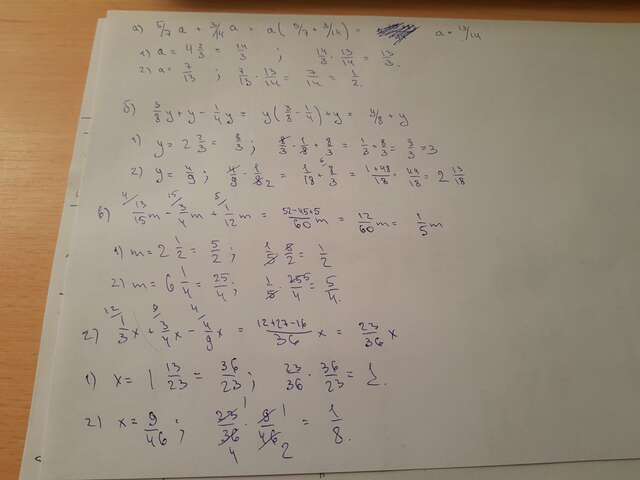 a) 4/7 a + 5/14 a = a (4/7 + 5/14) = a · 13/14
1) a = 4 2/3 = 14/3 ; 14/3 · 13/14 = 13/3.
2) a = 7/13 ; 7/13 · 13/14 = 7/14 = 1/2.
б) 3/8 y + y - 1/4 y = y (3/8 - 1/4) + y = 1/8 + y
1) y = 2 2/3 = 8/3 ; 8/3 · 1/8 + 8/3 = 1/3 + 8/3 = 9/3 = 3
2) y = 4/9 ; 4/9 · 1/8 = 1/18 + 8/3 = 1+48/18 = 49/18 = 2 13/18
в) 13/15 m - 3/4 m + 1/12 m = 52-45+5/60 m = 12/60 m = 1/5 m
1) m = 2 1/2 = 5/2 ; 1/5 · 5/2 = 1/2
2) m = 6 1/4 = 25/4 ; 1/5 · 25/4 = 5/4.
г) 1/3 x + 3/4 x - 4/9 x = 12+27-16/36 x = 23/36 x
1) x = 1 13/23 = 36/23 ; 23/36 · 36/23 = 1.
2) x = 9/46 ; 23/36 · 9/46 = 1/8.